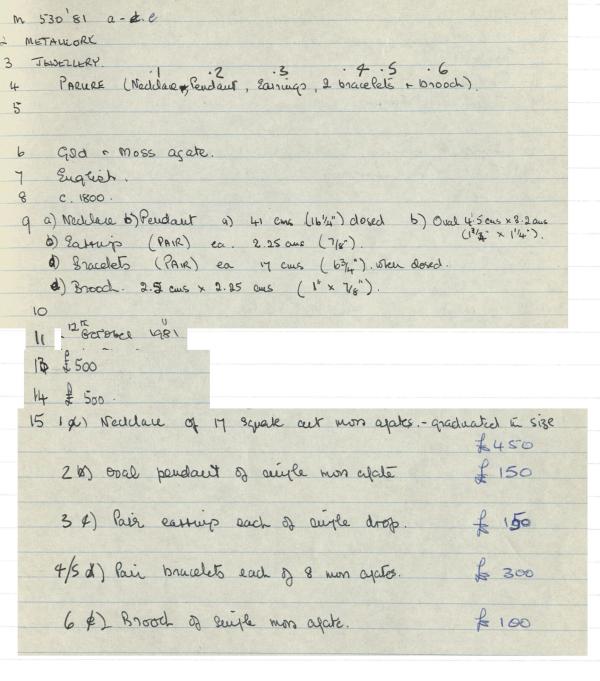 M 530'81 a-d.e
2 METALWORK
3 JEWELLERY.
·1 ·2 ·3 ·4 ·5 ·6
4 PARURE (Necklace, Pendant, Earrings, 2 bracelets + brooch).
5
6 Gold + Moss agate.
7 English.
8 c. 1800.
9 a) Necklace b) Pendant a) 41 cms (16¼") closed b) Oval 4.5 cms x 3.2 cms
(1¾" x 1¼").
Earrings (PAIR) ea. 2.25 cms (7/8").
d) Bracelets (PAIR) ea 17 cms (6¾"). when closed.
Brooch. 2.5 cms x 2.25 cms (1" x 7/8").
10
11 12th October 1981
13 £500
14 £ 500.
15 1 a) Necklace of 17 square cut moss agates. - graduated in size
£450
2 b) oval pendant of single moss agate £ 150
3 c) Pair earrings each of single drop. £ 150
4/5 d) Pair bracelets each of 8 moss agates. £ 300
6 e) Brooch of single moss agate. £ 100